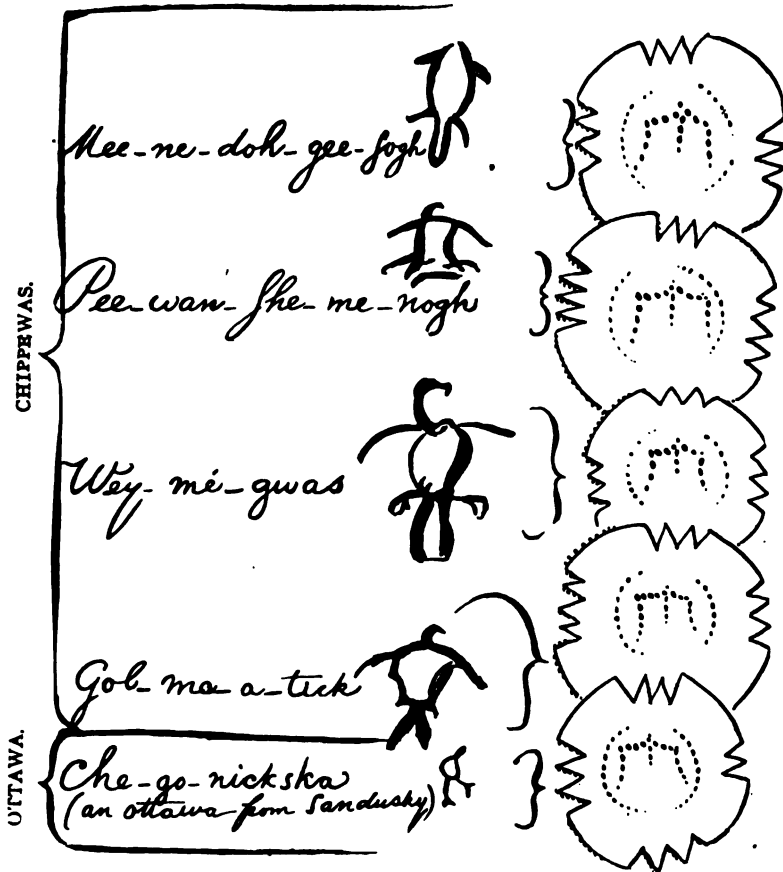 CHIPPEWAS.
Mee-ne-doh-gee-sogh
Pee-wan-she-me-nogh
Wey-me-gwas
Gob-ma-a-tick
OTTAWA.
Che-go-nickska
(an ottawa from Sandusky)